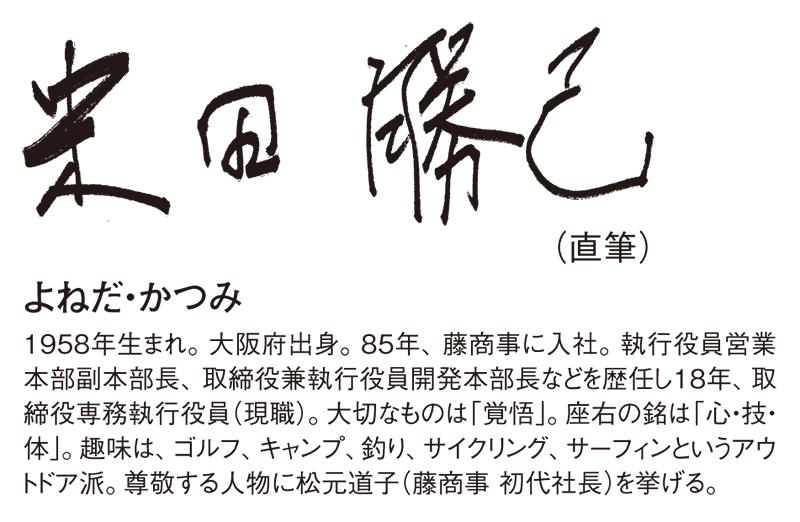 米田勝己
（直筆）
よねだ・かつみ
1958年生まれ。大阪府出身。85年、藤商事に入社。執行役員営業
本部副本部長、取締役兼執行役員開発本部長などを歴任し18年、取
締役専務執行役員（現職）。大切なものは「覚悟」。座右の銘は「心・技・
体」。趣味は、ゴルフ、キャンプ、釣り、サイクリング、サーフィンというアウ
トドア派。尊敬する人物に松元道子（藤商事 初代社長）を挙げる。